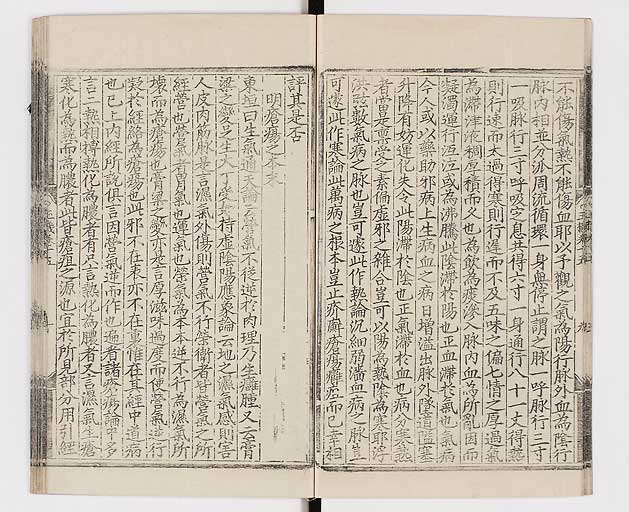 不能傷氣熱不能傷血耶以予觀之氣為陽行脉外血為陰行
脉內相並分泒周流循環一身無停止謂之脉一呼脉行三寸
一吸脉行三寸呼吸定息共得六寸一身通行八十一丈得熱
則行速而太過得寒則行遲而不及五味之偏七情之厚過氣
為滯津液稠厚積而久也為飲為痰滲入脉內血為所亂因而
凝濁運行沍沍或為沸騰此陰滯於陽也正血滯於氣也氣病
今人或以藥助邪病上生病血之病日增溢出脉外隧道隘塞
升降有妨運化失令此陽滯於陰也正氣滯於血也病分寒熱
者當是稟受之素偏虛邪之雜合豈可以陽為熱陰為寒耶浮
洪
可遂此作寒論此萬病之根本豈止疥癬瘡瘍癰疽而已幸相
評其是否
明瘡瘍之本末
東垣曰生氣通天論云營氣不從逆於肉理乃生癰腫又云膏
梁之變足生大丁受如持虛陰陽應象論云地之濕氣感則害
人皮肉筋脉是言濕氣外傷則營氣不行榮衛者皆營氣之所
經營也營氣者胃氣也運氣也營氣為本本逆不行為濕氣所
壞而為瘡瘍也膏粱之變亦是言厚滋味過度而使營氣逆行
凝於經絡為瘡瘍也此邪不在表亦不在裏惟在其經中道病
也已上內經所說俱言因營氣逆而作也遍者諸瘡瘍論中多
言二熱相搏熱化為膿者有只言熱化為膿者又言濕氣生瘡
寒化為熱而為膿者此皆瘡疽之源也宜於所見部分用引經